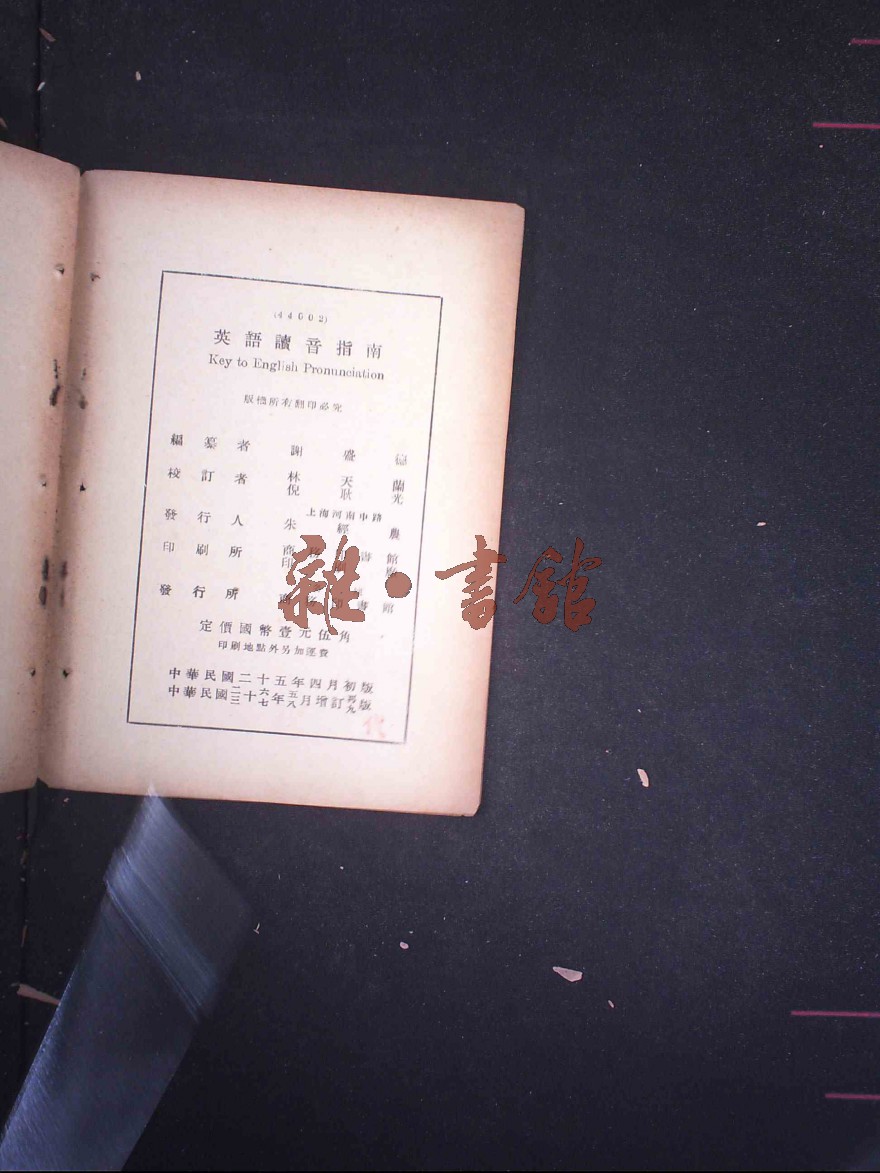 (44602)
英語讀音指南
Key to English Pronunciation
版權所有翻印必究
編纂者 謝盛德
校訂者 林天蘭
倪耿光
上海河南中路
發行人 朱經農
印刷所 商務印書館
印刷廠
發行所 商務印書館
定價國幣壹元伍角
印刷地點外另加運費
中華民國二十五年四月初版
中華民國二十六年五月增訂再版
三十七 八 九
代
雜·書館